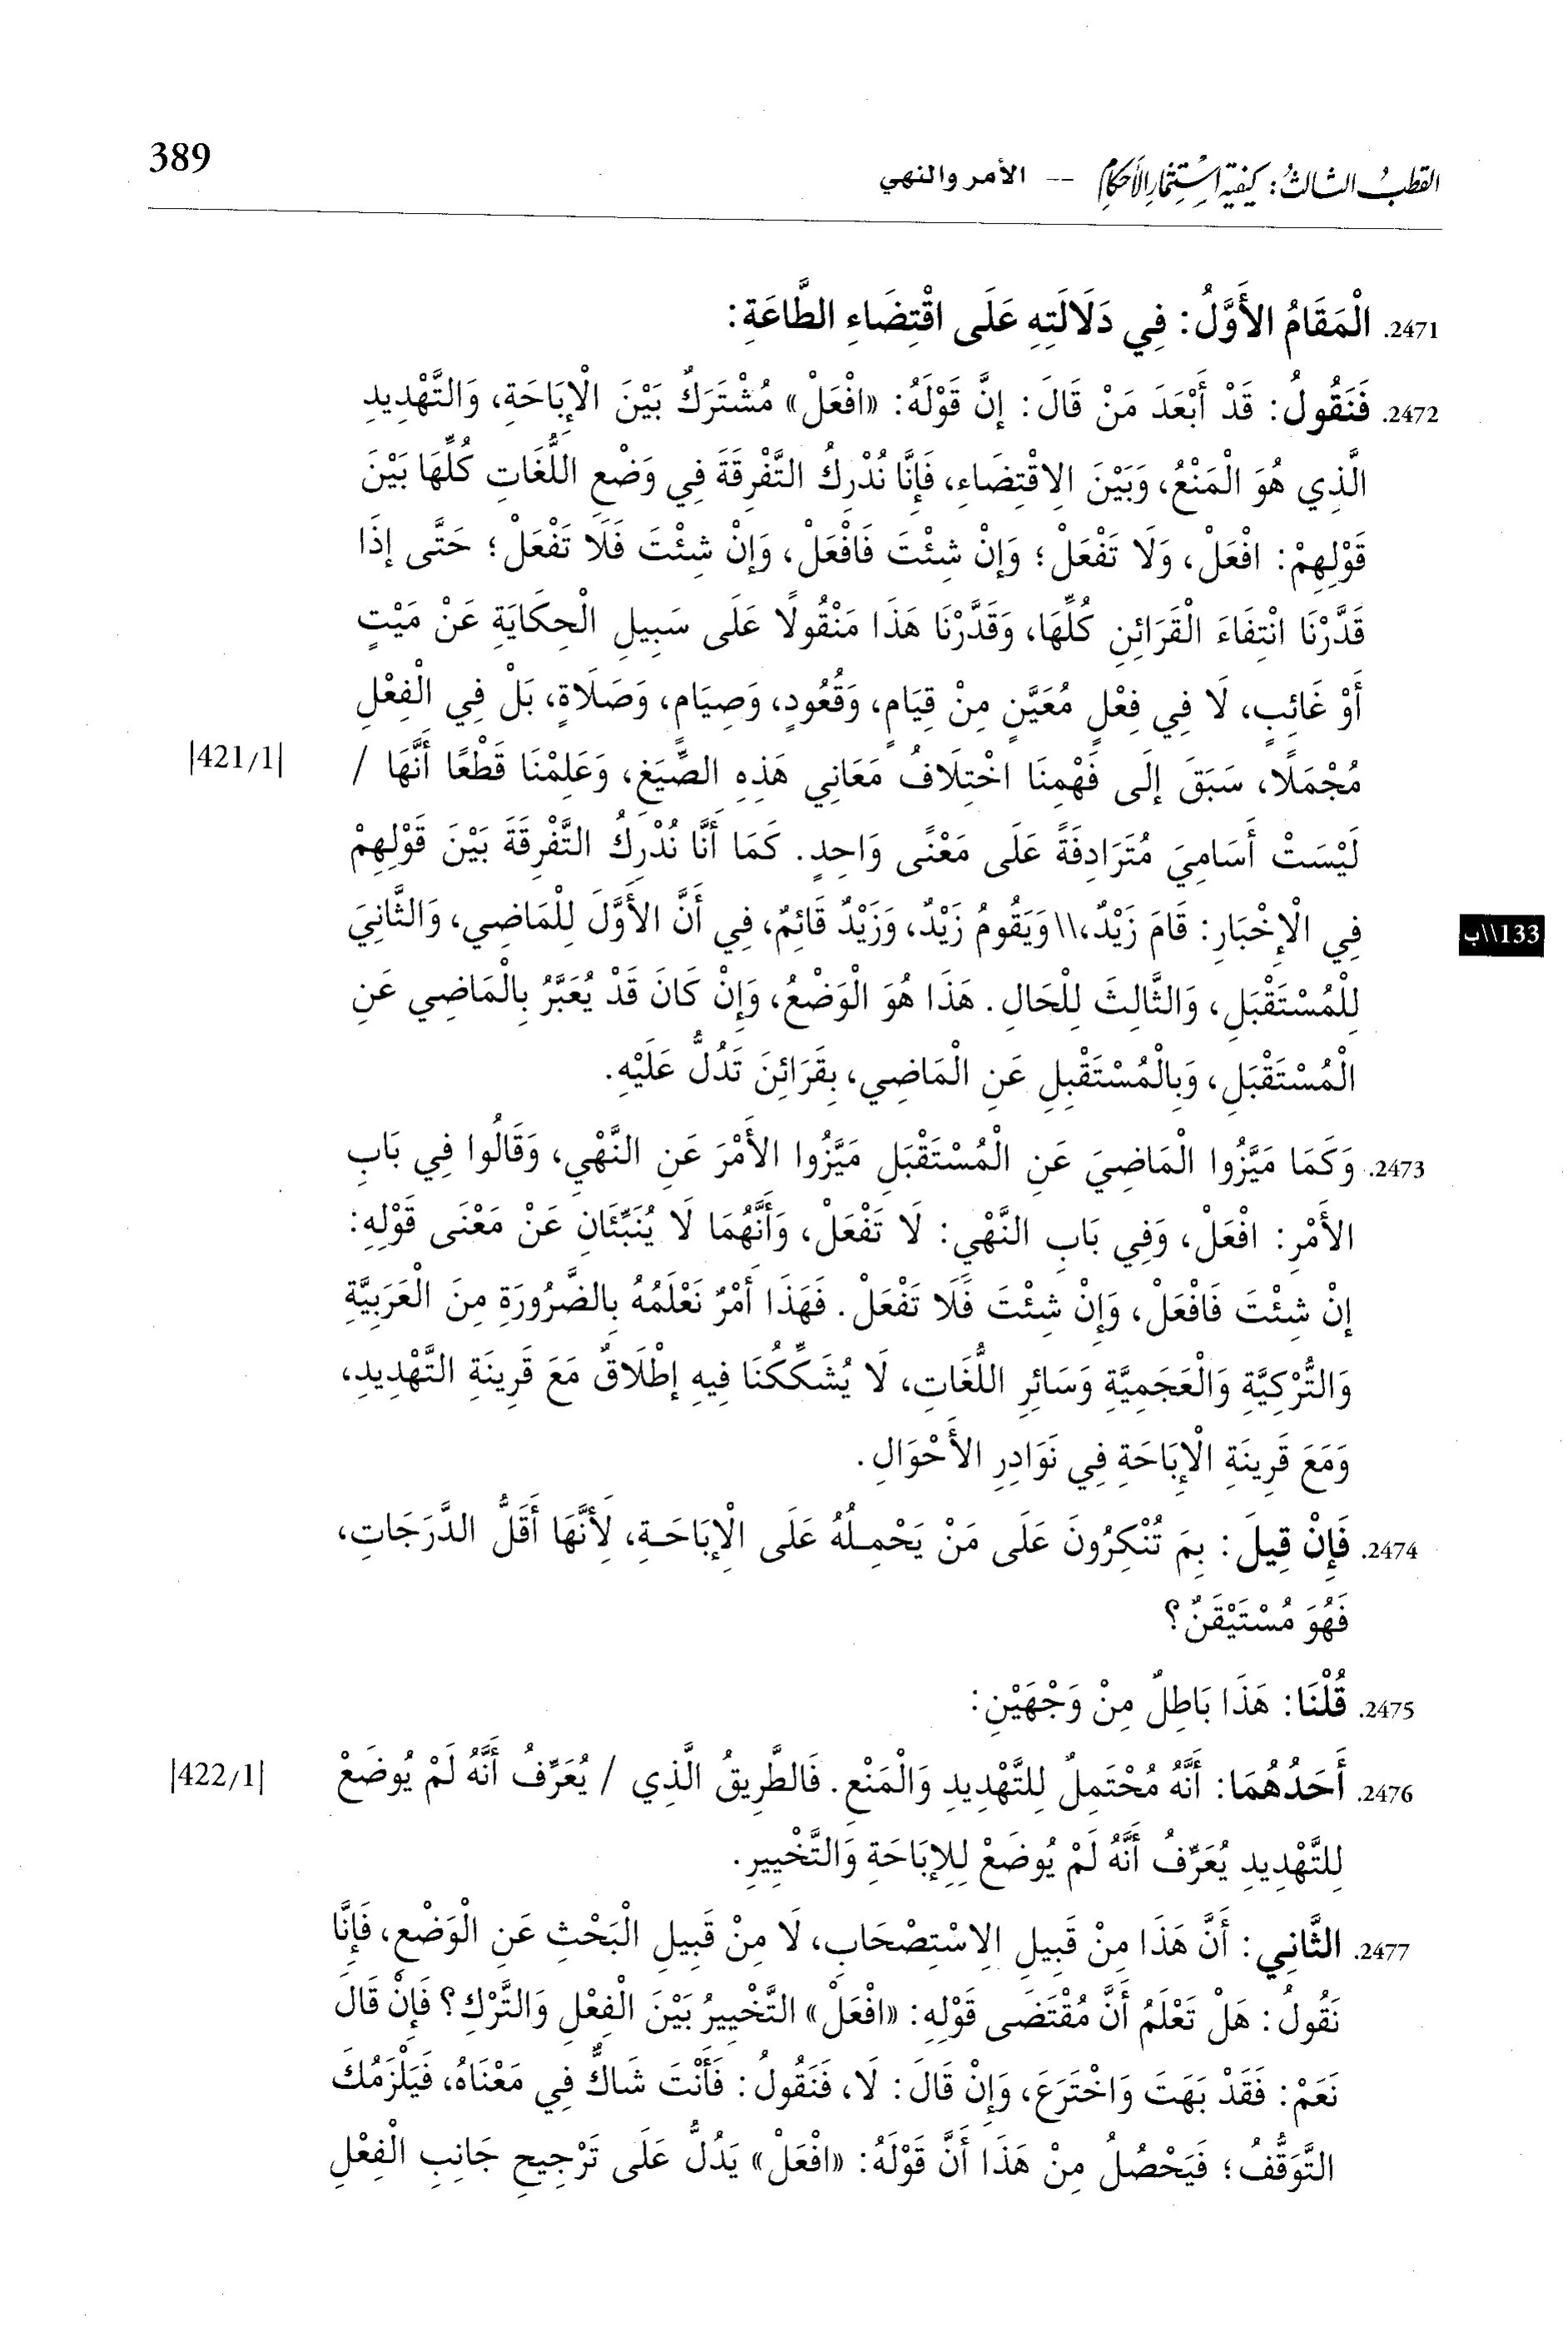 القطب الثالث: كيفية استثمار الأحكام -- الأمر والنهي 389
2471. الْمَقَامُ الأَوَّلُ: فِي دَلَالَتِهِ عَلَى اقْتِضَاءِ الطَّاعَةِ:
2472. فَنَقُولُ: قَدْ أَبْعَدَ مَنْ قَالَ: إِنَّ قَوْلَهُ: «افْعَلْ» مُشْتَرَكٌ بَيْنَ الْإِبَاحَةِ، وَالتَّهْدِيدِ
الَّذِي هُوَ الْمَنْعُ، وَبَيْنَ الِاقْتِضَاءِ، فَإِنَّا نُدْرِكُ التَّفْرِقَةَ فِي وَضْعِ اللُّغَاتِ كُلِّهَا بَيْنَ
قَوْلِهِمْ: افْعَلْ، وَلَا تَفْعَلْ؛ وَإِنْ شِئْتَ فَافْعَلْ، وَإِنْ شِئْتَ فَلَا تَفْعَلْ؛ حَتَّى إِذَا
قَدَّرْنَا انْتِفَاءَ الْقَرَائِنِ كُلِّهَا، وَقَدَّرْنَا هَذَا مَنْقُولًا عَلَى سَبِيلِ الْحِكَايَةِ عَنْ مَيْتٍ
أَوْ غَائِبٍ، لَا فِي فِعْلٍ مُعَيَّنٍ مِنْ قِيَامٍ، وَقُعُودٍ، وَصِيَامٍ، وَصَلَاةٍ، بَلْ فِي الْفِعْلِ
مُجْمَلًا، سَبَقَ إِلَى فَهْمِنَا اخْتِلَافُ مَعَانِي هَذِهِ الصِّيَغِ، وَعَلِمْنَا قَطْعًا أَنَّهَا / |421/1|
لَيْسَتْ أَسَامِيَ مُتَرَادِفَةً عَلَى مَعْنًى وَاحِدٍ. كَمَا أَنَّا نُدْرِكُ التَّفْرِقَةَ بَيْنَ قَوْلِهِمْ
فِي الْإِخْبَارِ: قَامَ زَيْدٌ،\\ وَيَقُومُ زَيْدٌ، وَزَيْدٌ قَائِمٌ، فِي أَنَّ الأَوَّلَ لِلْمَاضِي، وَالثَّانِيَ 133\\ب
لِلْمُسْتَقْبَلِ، وَالثَّالِثَ لِلْحَالِ. هَذَا هُوَ الْوَضْعُ، وَإِنْ كَانَ قَدْ يُعَبَّرُ بِالْمَاضِي عَنِ
الْمُسْتَقْبَلِ، وَبِالْمُسْتَقْبِلِ عَنِ الْمَاضِي، بِقَرَائِنَ تَدُلُّ عَلَيْهِ.
2473. وَكَمَا مَيَّزُوا الْمَاضِيَ عَنِ الْمُسْتَقْبَلِ مَيَّزُوا الأَمْرَ عَنِ النَّهْيِ، وَقَالُوا فِي بَابِ
الأَمْرِ: افْعَلْ، وَفِي بَابِ النَّهْيِ: لَا تَفْعَلْ، وَأَنَّهُمَا لَا يُنَبِّئَانِ عَنْ مَعْنَى قَوْلِهِ:
إِنْ شِئْتَ فَافْعَلْ، وَإِنْ شِئْتَ فَلَا تَفْعَلْ. فَهَذَا أَمْرٌ نَعْلَمُهُ بِالضَّرُورَةِ مِنَ الْعَرَبِيَّةِ
وَالتُّرْكِيَّةِ وَالْعَجَمِيَّةِ وَسَائِرِ اللُّغَاتِ، لَا يُشَكِّكُنَا فِيهِ إِطْلَاقٌ مَعَ قَرِينَةِ التَّهْدِيدِ،
وَمَعَ قَرِينَةِ الْإِبَاحَةِ فِي نَوَادِرِ الأَحْوَالِ.
2474. فَإِنْ قِيلَ: بِمَ تُنْكِرُونَ عَلَى مَنْ يَحْمِلُهُ عَلَى الْإِبَاحَةِ، لِأَنَّهَا أَقَلُّ الدَّرَجَاتِ،
فَهُوَ مُسْتَيْقَنٌ؟
2475. قُلْنَا: هَذَا بَاطِلٌ مِنْ وَجْهَيْنِ:
2476. أَحَدُهُمَا: أَنَّهُ مُحْتَمِلٌ لِلتَّهْدِيدِ وَالْمَنْعِ. فَالطَّرِيقُ الَّذِي / يُعَرِّفُ أَنَّهُ لَمْ يُوضَعْ |422/1|
لِلتَّهْدِيدِ يُعَرِّفُ أَنَّهُ لَمْ يُوضَعْ لِلإِبَاحَةِ وَالتَّخْيِيرِ.
2477. الثَّانِي: أَنَّ هَذَا مِنْ قَبِيلِ الِاسْتِصْحَابِ، لَا مِنْ قَبِيلِ الْبَحْثِ عَنِ الْوَضْعِ، فَإِنَّا
نَقُولُ: هَلْ تَعْلَمُ أَنَّ مُقْتَضَى قَوْلِهِ: «افْعَلْ» التَّخْيِيرُ بَيْنَ الْفِعْلِ وَالتَّرْكِ؟ فَإِنْ قَالَ
نَعَمْ: فَقَدْ بَهَتَ وَاخْتَرَعَ، وَإِنْ قَالَ: لَا، فَنَقُولُ: فَأَنْتَ شَاكٌّ فِي مَعْنَاهُ، فَيَلْزَمُكَ
التَّوَقُّفُ؛ فَيَحْصُلُ مِنْ هَذَا أَنَّ قَوْلَهُ: «افْعَلْ» يَدُلُّ عَلَى تَرْجِيحِ جَانِبِ الْفِعْلِ